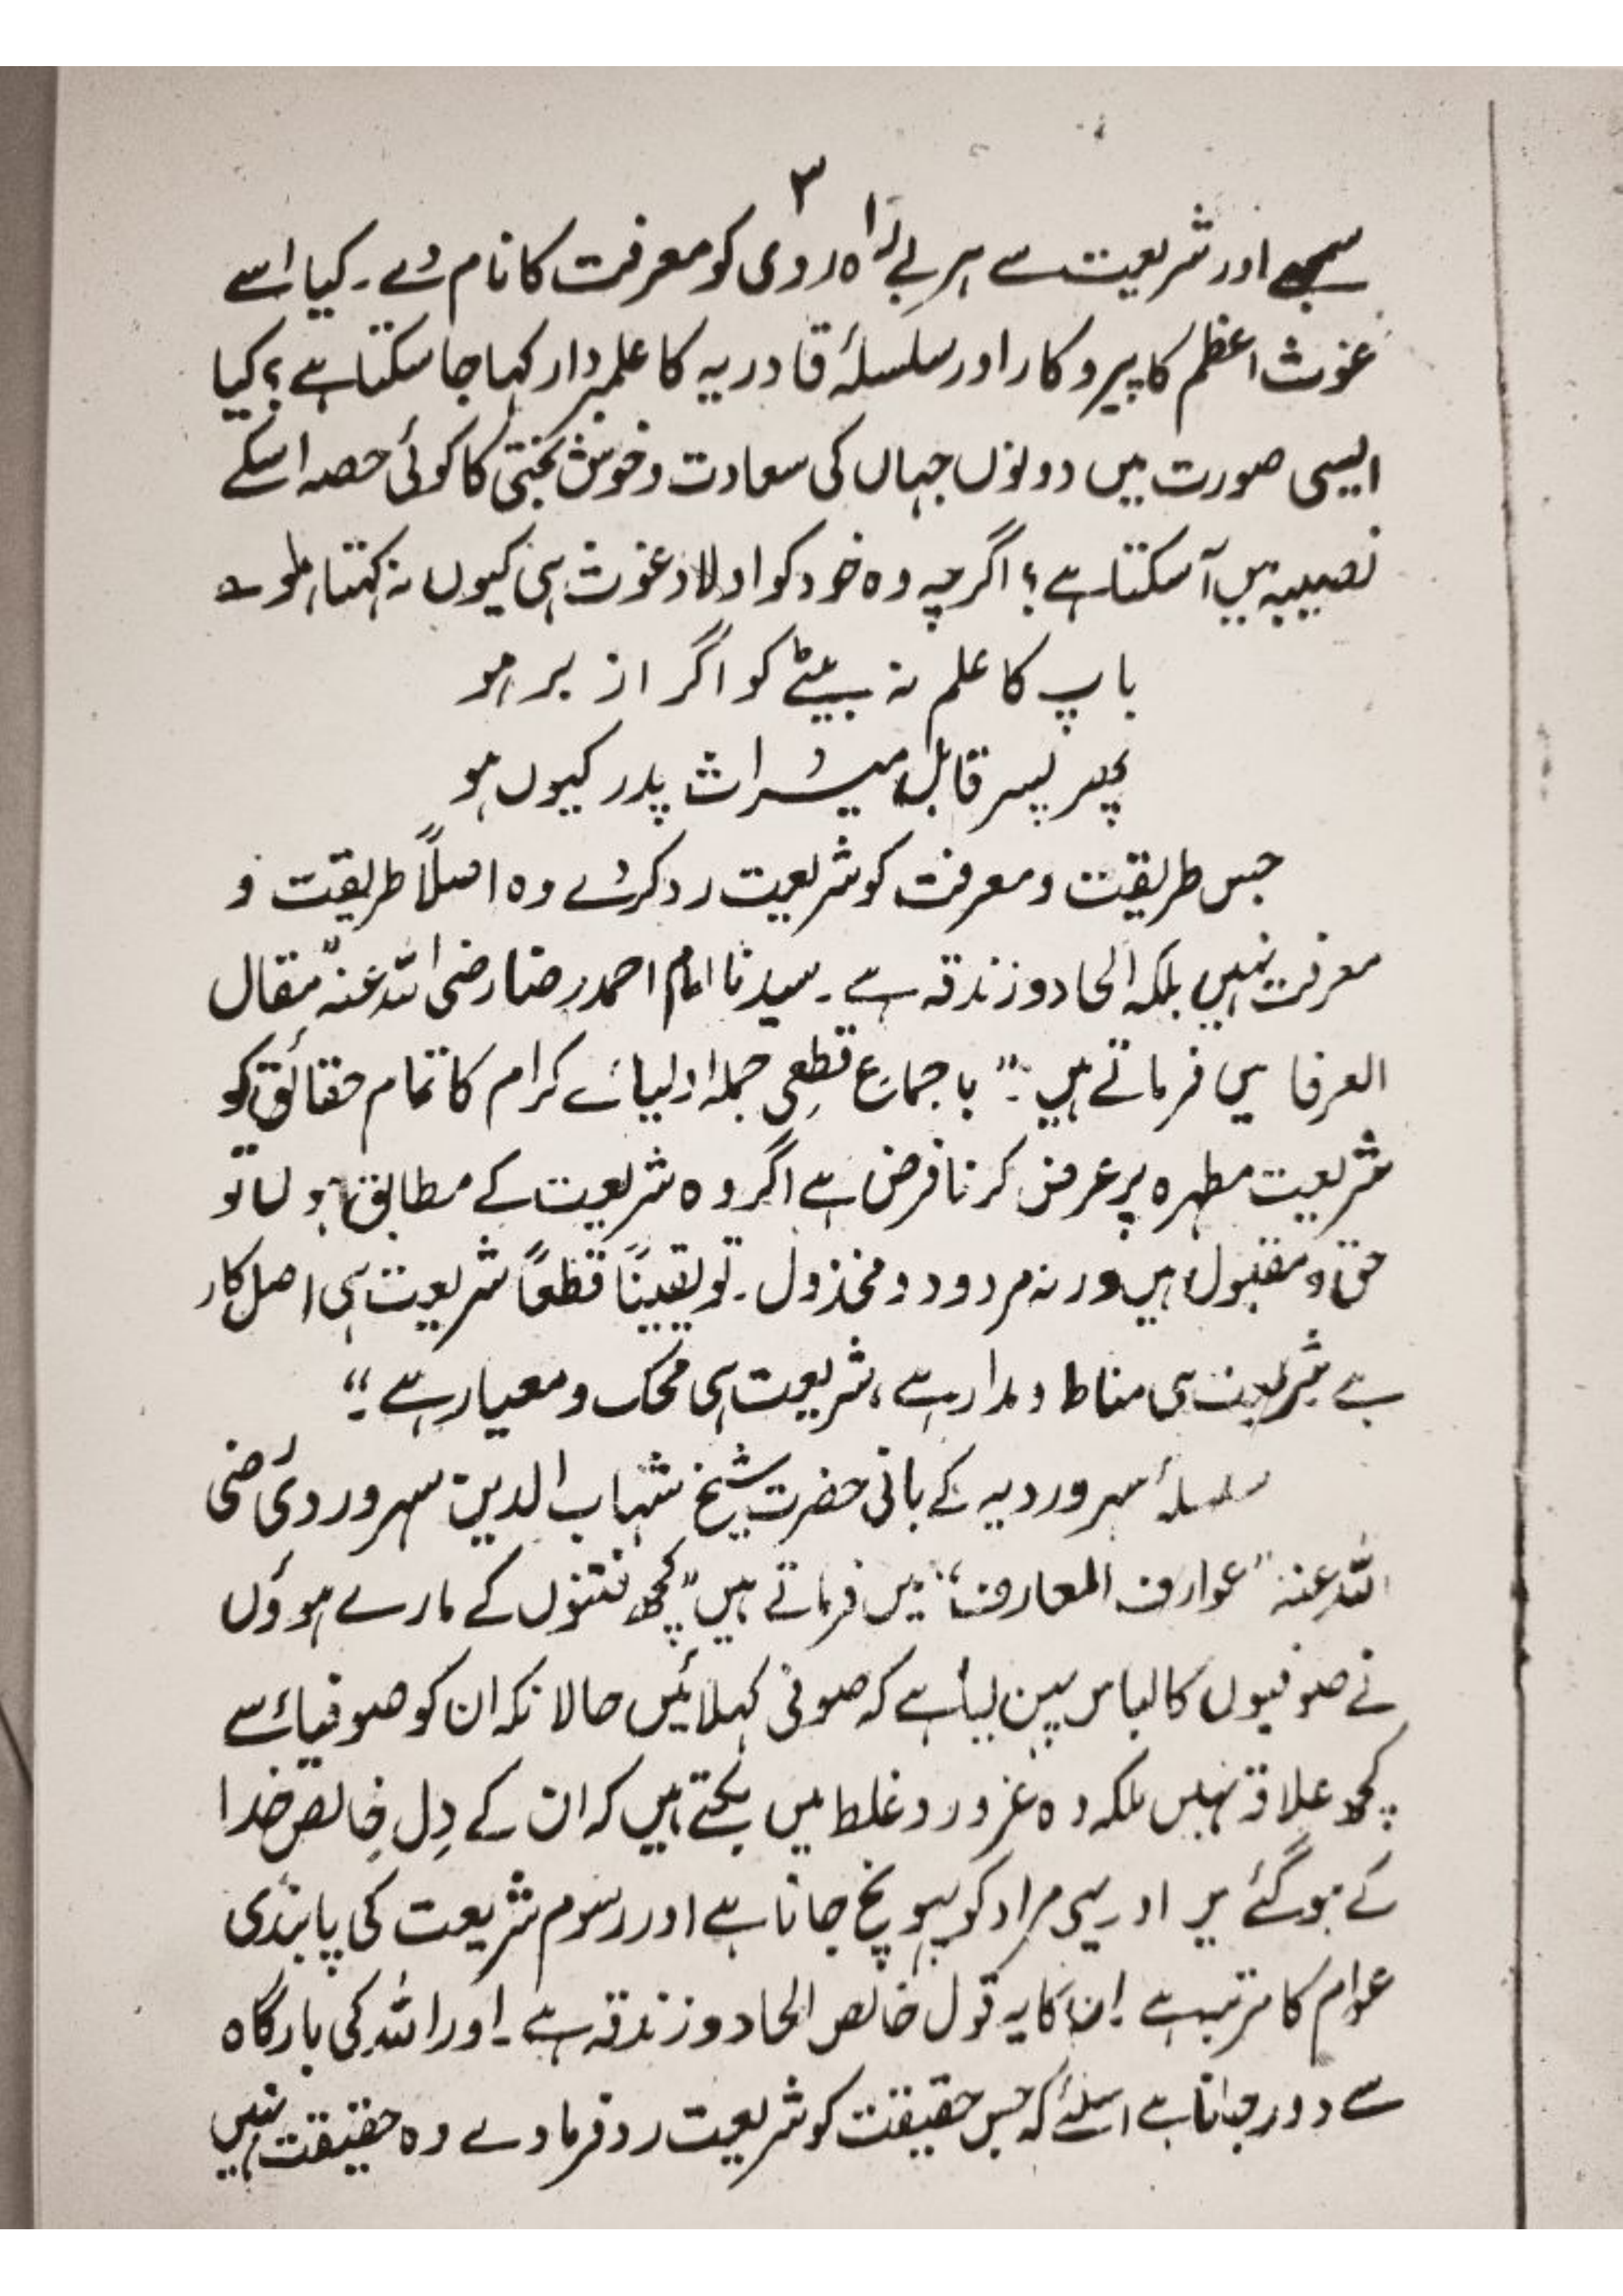 ۳
سمجھے اور شریعت سے ہر بے راہ روی کو معرفت کا نام دے۔ کیا اسے
غوث اعظم کا پیروکار اور سلسلۂ قادریہ کا علمبردار کہا جا سکتا ہے؟ کیا
ایسی صورت میں دونوں جہاں کی سعادت و خوش بختی کا کوئی حصہ اسکے
نصیبہ میں آ سکتا ہے؟ اگرچہ وہ خود کو اولاد غوث ہی کیوں نہ کہتا ہو
باپ کا علم نہ بیٹے کو اگر ازبر ہو
پھر پسر قابل میراث پدر کیوں ہو
جس طریقت و معرفت کو شریعت رد کردے وہ اصلاً طریقت و
معرفت نہیں بلکہ الحاد و زندقہ ہے۔ سیدنا امام احمد رضا رضی اللہ عنہ مقال
العرفا میں فرماتے ہیں:۔ "باجماع قطعی جملہ اولیائے کرام کا تمام حقائق کو
شریعت مطہرہ پر عرض کرنا فرض ہے اگر وہ شریعت کے مطابق ہوں تو
حق و مقبول ہیں ورنہ مردود و مخذول۔ تو یقیناً قطعاً شریعت ہی اصل کار
ہے شریعت ہی مناط و مدار ہے، شریعت ہی محک و معیار ہے۔"
سلسلۂ سہروردیہ کے بانی حضرت شیخ شہاب الدین سہروردی رضی
اللہ عنہ "عوارف المعارف" میں فرماتے ہیں "کچھ فتنوں کے مارے ہوؤں
نے صوفیوں کا لباس پہن لیا ہے کہ صوفی کہلائیں حالانکہ ان کو صوفیاء سے
کچھ علاقہ نہیں بلکہ وہ غرور و غلط میں بکتے ہیں کہ ان کے دِل خالص خدا
کے ہو گئے ہیں اور یہی مراد کو پہونچ جانا ہے اور رسوم شریعت کی پابندی
عوام کا مرتبہ ہے ان کا یہ قول خالص الحاد و زندقہ ہے۔ اور اللہ کی بارگاہ
سے دور جانا ہے اسلئے کہ جس حقیقت کو شریعت رد فرما دے وہ حقیقت نہیں